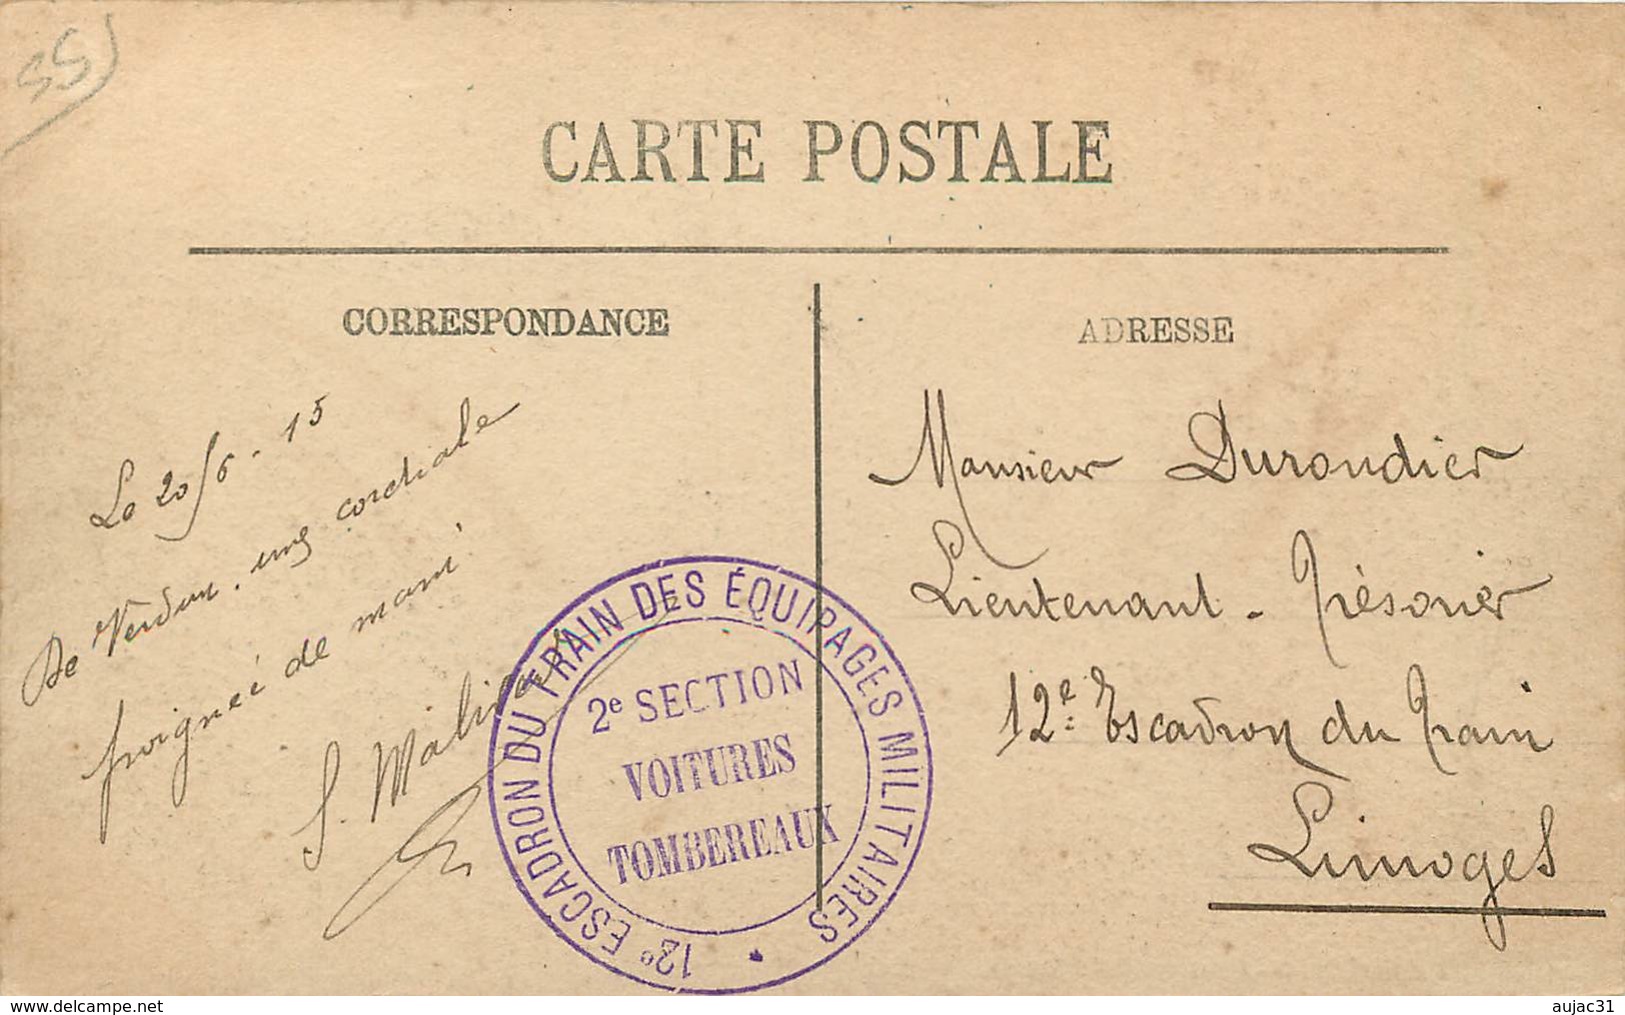 55
CARTE POSTALE
CORRESPONDANCE
Le 20/6. 15
De Verdun. une cordiale
poignée de main
S.
12e ESCADRON DU TRAIN DES ÉQUIPAGES MILITAIRES
2e SECTION
VOITURES
TOMBEREAUX
ADRESSE
Monsieur Durondier
Lieutenant - Trésorier
12e Escadron du Train
Limoges
www.delcampe.net
aujac31